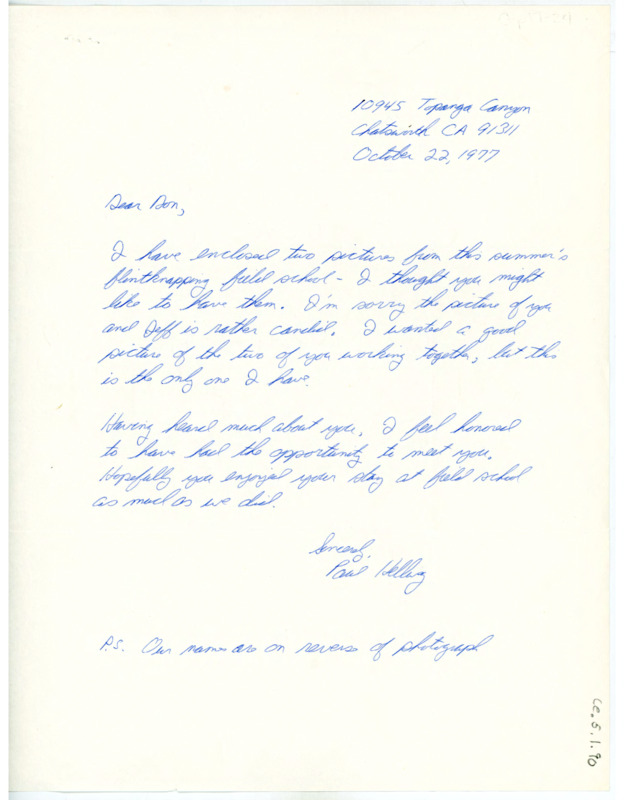 10945 Topanga Canyon
Chatsworth CA 91311
October 22, 1977
Dear Don,
I have enclosed two pictures from this summer's
flintknapping field school - I thought you might
like to have them. I'm sorry the picture of you
and Jeff is rather candid. I wanted a good
picture of the two of you working together, but this
is the only one I have.
Having heard much about you, I feel honored
to have had the opportunity to meet you.
Hopefully you enjoyed your stay at field school
as much as we did.
Sincerely,
Paul Hellwig
P.S. Our names are on reverse of photograph
Ce.5.1.90